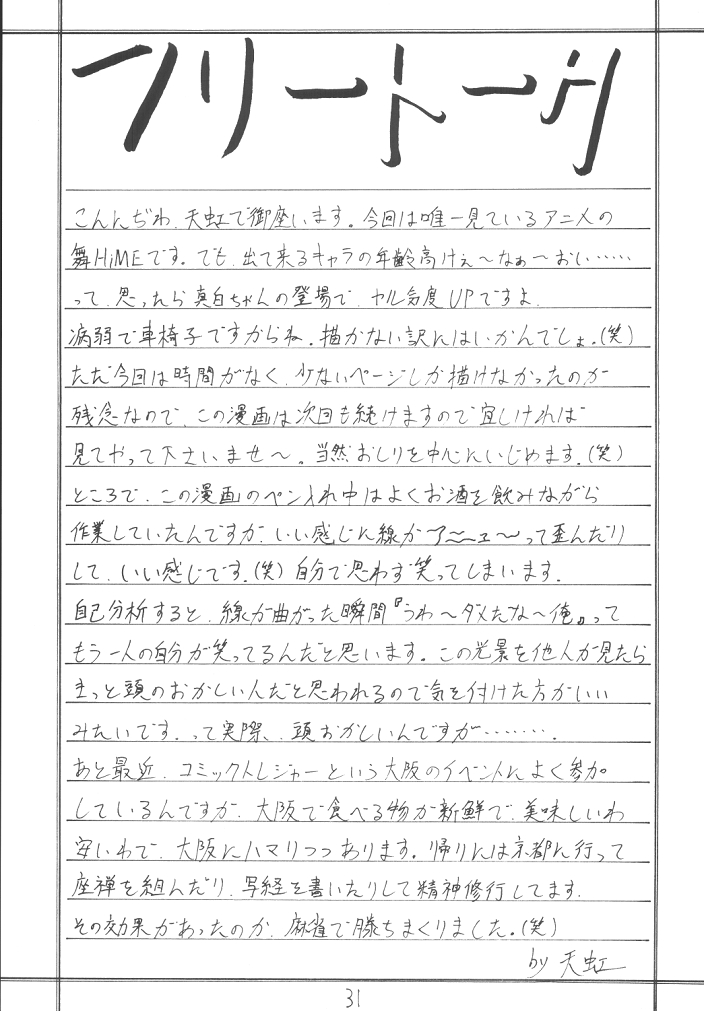 フリートーク
こんにぢわ、天虹で御座います。今回は唯一見ているアニメの
舞HiMEです。でも、出て来るキャラの年齢高けぇ～なぁ～おい……
って、思ったら真白ちゃんの登場で、ヤル気度UPですよ、
病弱で車椅子ですからね。描かない訳にはいかんでしょ。(笑)
ただ今回は時間がなく、少ないページしか描けなかったのが
残念なので、この漫画は次回も続けますので宜しければ
見てやって下さいませ～。当然おしりを中心にいじめます。(笑)
ところで、この漫画のペン入れ中はよくお酒を飲みながら
作業していたんですが、いい感じに線が って歪んだり
して、いい感じです。(笑)自分で思わず笑ってしまいます。
自己分析すると、線が曲がった瞬間『うわ～ダメだな～俺』って
もう一人の自分が笑ってるんだと思います。この光景を他人が見たら
きっと頭のおかしい人だと思われるので気を付けた方がいい
みたいです。って実際、頭おかしいんですが………。
あと最近、コミックトレジャーという大阪のイベントによく参加
しているんですが、大阪で食べる物が新鮮で、美味しいわ
安いわで、大阪にハマりつつあります。帰りには京都に行って
座禅を組んだり、写経を書いたりして精神修行してます。
その効果があったのか、麻雀で勝ちまくりました。(笑)
by 天虹
31